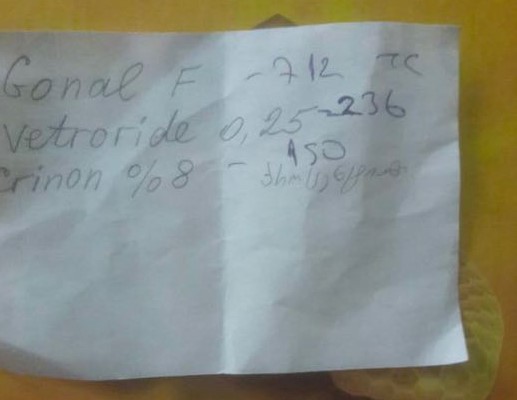 Gonal F - 712 TL
Vetroride 0,25 - 236
Crinon %8 - 150